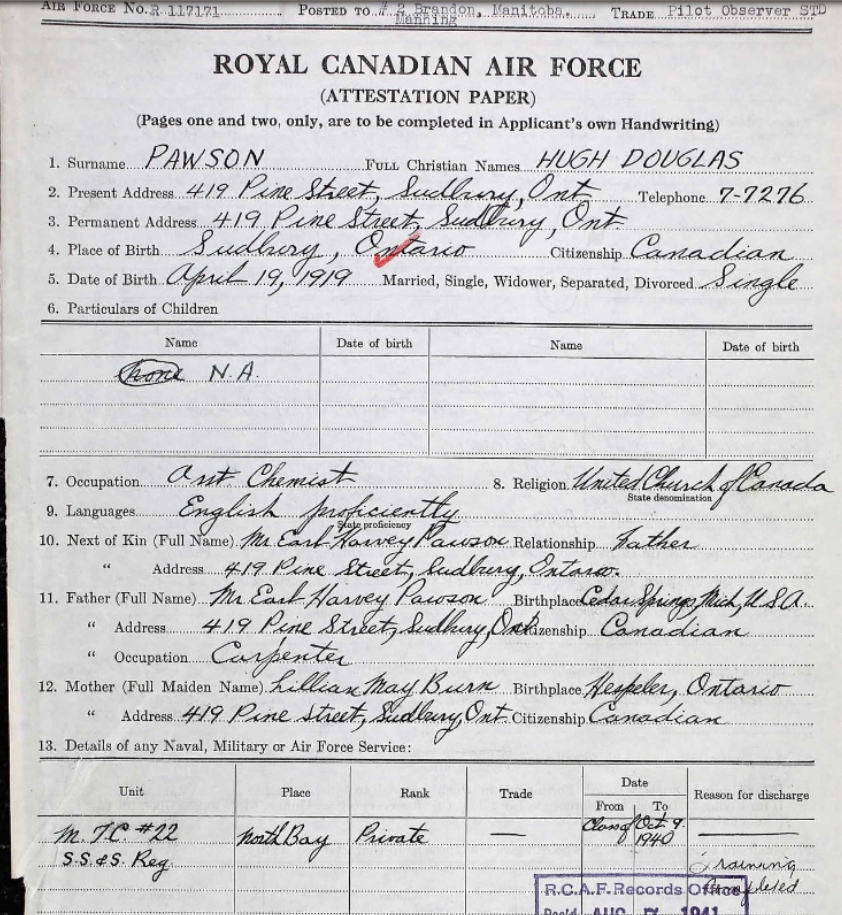 AIR FORCE NO. R 117171 POSTED TO # 2 Brandon, Manitoba. TRADE Pilot Observer STD
Manning
ROYAL CANADIAN AIR FORCE
(ATTESTATION PAPER)
(Pages one and two, only, are to be completed in Applicant's own Handwriting)
1. Surname PAWSON FULL Christian Names HUGH DOUGLAS
2. Present Address 419 Pine Street, Sudbury, Ont. Telephone 7-7276
3. Permanent Address 419 Pine Street, Sudbury, Ont.
4. Place of Birth Sudbury, Ontario Citizenship Canadian
5. Date of Birth April 19, 1919 Married, Single, Widower, Separated, Divorced Single
6. Particulars of Children
Name Date of birth Name Date of birth
N.A.
7. Occupation Chemist 8. Religion United Church of Canada
State denomination
9. Languages English proficiently
State proficiency
10. Next of Kin (Full Name) Mr. Earl Harvey Pawson Relationship Father
" Address 419 Pine Street, Sudbury, Ontario.
11. Father (Full Name) Mr. Earl Harvey Pawson Birthplace Cedar Springs, Mich, U.S.A.
" Address 419 Pine Street, Sudbury, Ont. Citizenship Canadian
" Occupation Carpenter
12. Mother (Full Maiden Name) Lillian May Burn Birthplace Hespeler, Ontario
" Address 419 Pine Street, Sudbury, Ont. Citizenship Canadian
13. Details of any Naval, Military or Air Force Service:
Unit Place Rank Trade Date Reason for discharge
From To
M.TC #22 North Bay Private — Class of Oct. 9
1940
S.S. & S. Reg. Training
Completed
R.C.A.F. Records Office
AUG 7 1941